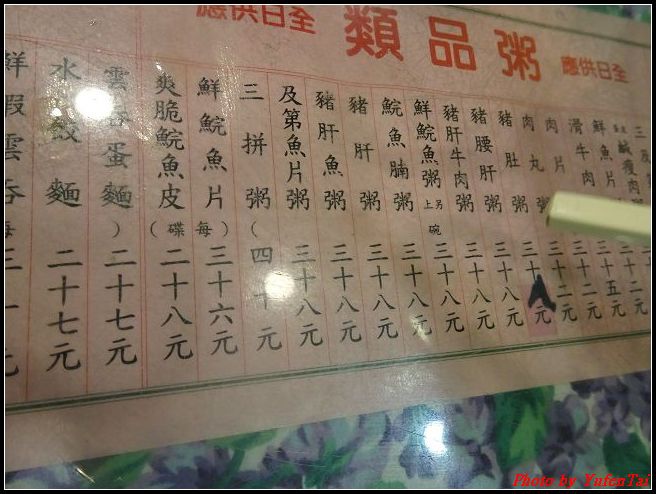 全日供應
粥品類
全日供應
鹹瘦肉
鮮魚片 三十五元
滑牛肉 三十二元
肉片 三十二元
肉丸粥 三十元
豬肚粥 三十八元
豬腰肝粥 三十八元
豬肝牛肉粥 三十八元
鮮鯇魚粥 另碗上 三十八元
鯇魚腩粥 三十八元
豬肝粥 三十八元
豬肝魚粥 三十八元
及第魚片粥 三十八元
三拼粥 四十元
鮮鯇魚片（每 三十六元
爽脆鯇魚皮 碟） 二十八元
雲吞蛋麵 二十七元
水餃麵 二十七元
鮮蝦雲吞
Photo by YufenTai